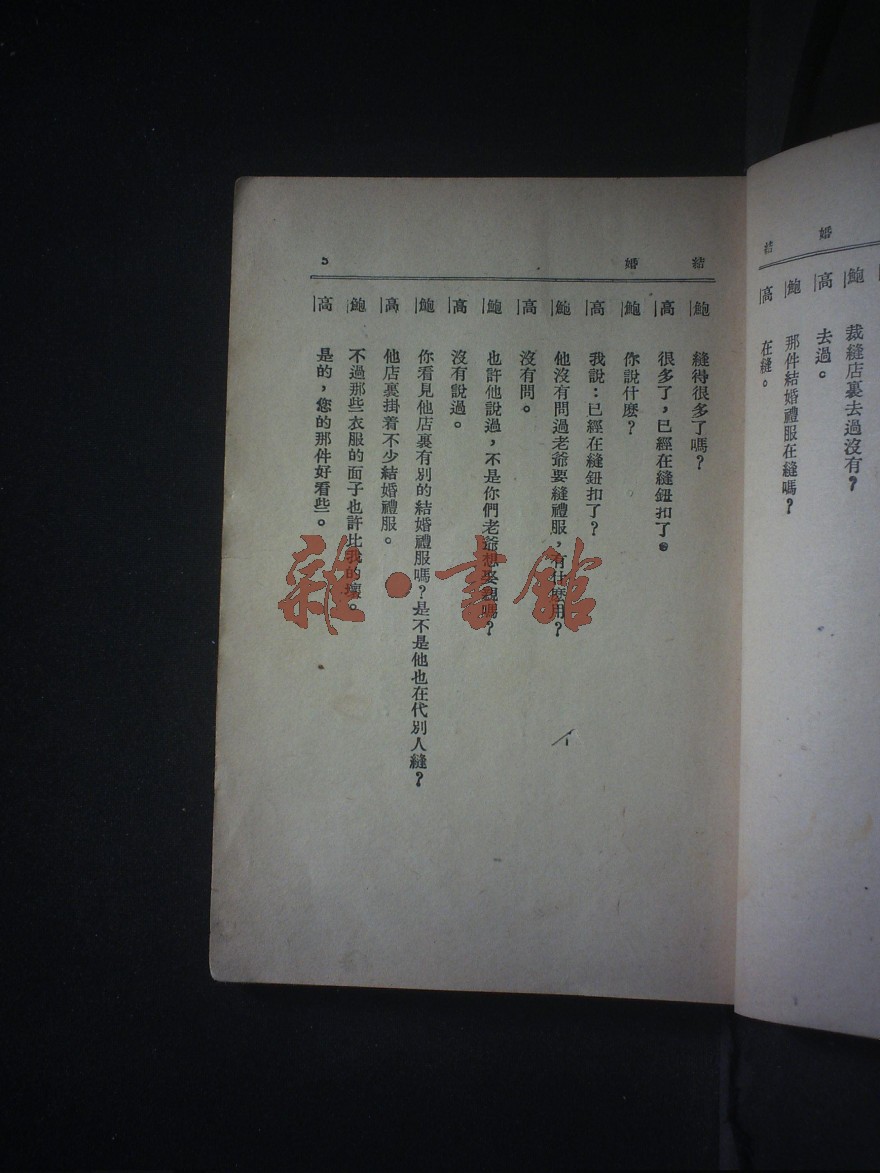 結婚
鮑
裁縫店裏去過沒有?
高
去過。
鮑
那件結婚禮服在縫嗎?
高
在縫。
結婚
鮑
縫得很多了嗎?
高
很多了,已經在縫鈕扣了。
鮑
你說什麼?
高
我說:已經在縫鈕扣了?
鮑
他沒有問過老爺要縫禮服,有什麼用?
高
沒有問。
鮑
也許他說過,不是你們老爺想娶親嗎?
高
沒有說過。
鮑
你看見他店裏有別的結婚禮服嗎?是不是他也在代別人縫?
高
他店裏掛着不少結婚禮服。
鮑
不過那些衣服的面子也許比我的壞。
高
是的,您的那件好看些。
雜·書館